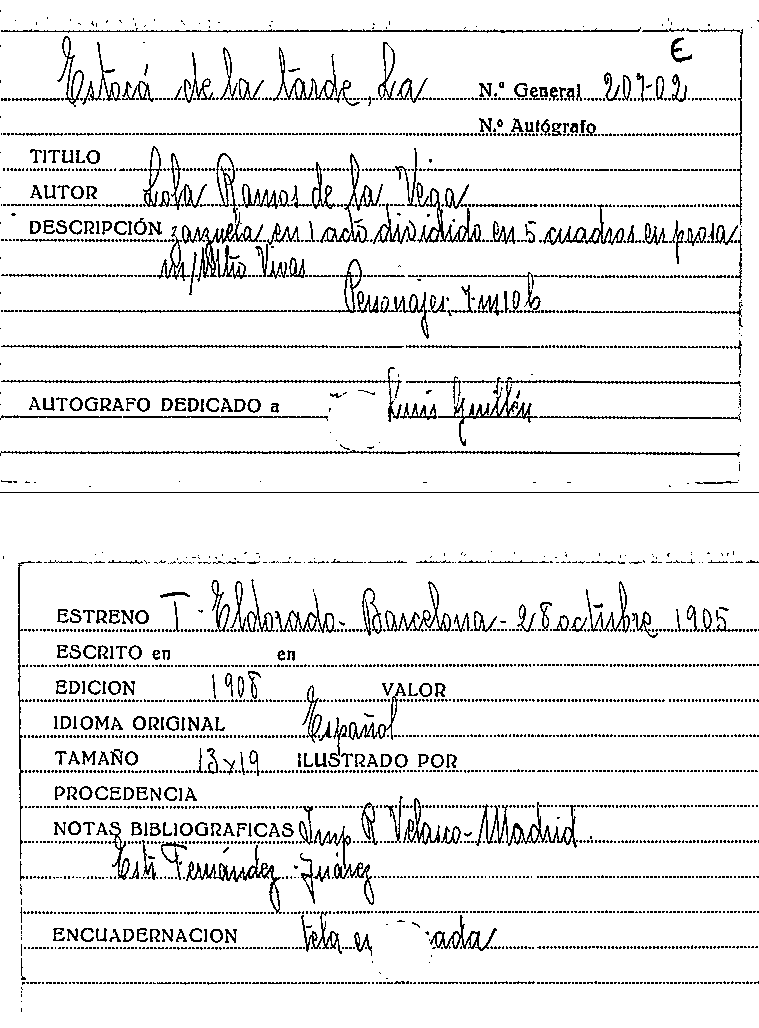 E
Estacá de la tarde, La N.º General 207-02
N.º Autógrafo
TITULO
AUTOR Lola Ramos de la Vega
DESCRIPCIÓN zarzuela en 1 acto dividido en 5 cuadros en prosa
M/Mtro Vivas
Personajes, 7 m 10 h
AUTOGRAFO DEDICADO a Luis Guillén
ESTRENO T. Eldorado - Barcelona - 28 octubre 1905
ESCRITO en en
EDICION 1908 VALOR
IDIOMA ORIGINAL Español
TAMAÑO 13x19 ILUSTRADO POR
PROCEDENCIA
NOTAS BIBLIOGRAFICAS Imp R Velasco - Madrid.
Fernández - Juárez
ENCUADERNACION tela